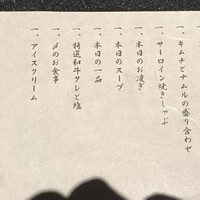 一、キムチとナムルの盛り合わせ
一、サーロイン焼きしゃぶ
一、本日のお凌ぎ
一、本日のスープ
一、本日の一品
一、特選和牛タレと塩
一、〆のお食事
一、アイスクリーム